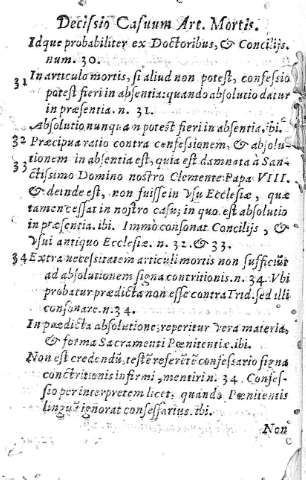 Decissio Casuum Art. Mortis.
Idque probabiliter ex Doctoribus, & Concilijs.
num. 30.
31 In articulo mortis, si aliud non potest, confessio
potest fieri in absentia: quando absolutio datur
in præsentia. n. 31.
Absolutio nunquam potest fieri in absentia. ibi.
32 Præcipua ratio contra confessionem, & absolu-
33 tionem in absentia est, quia est damnata à San-
ctissimo Domino nostro Clemente Papa VIII.
& deinde est, non fuisse in vsu Ecclesiæ, quæ
tamen cessat in nostro casu; in quo est absolutio
in præsentia. ibi. Immò consonat Concilijs, &
vsui antiquo Ecclesiæ. n. 32. & 33.
34 Extra necessitatem articuli mortis non sufficiūt
ad absolutionem signa contritionis. n. 34. Vbi
probatur prædicta non esse contra Trid. sed illi
consonare. n. 34.
In prædicta absolutione, reperitur vera materia,
& forma Sacramenti Pœnitentiæ. ibi.
Non est credendū, testē referētē confessario signa
conctritionis infirmi, mentiri n. 34. Confes-
sio per interpretem licet, quando Pœnitentis
linguā ignorat confessarius. ibi.
Non